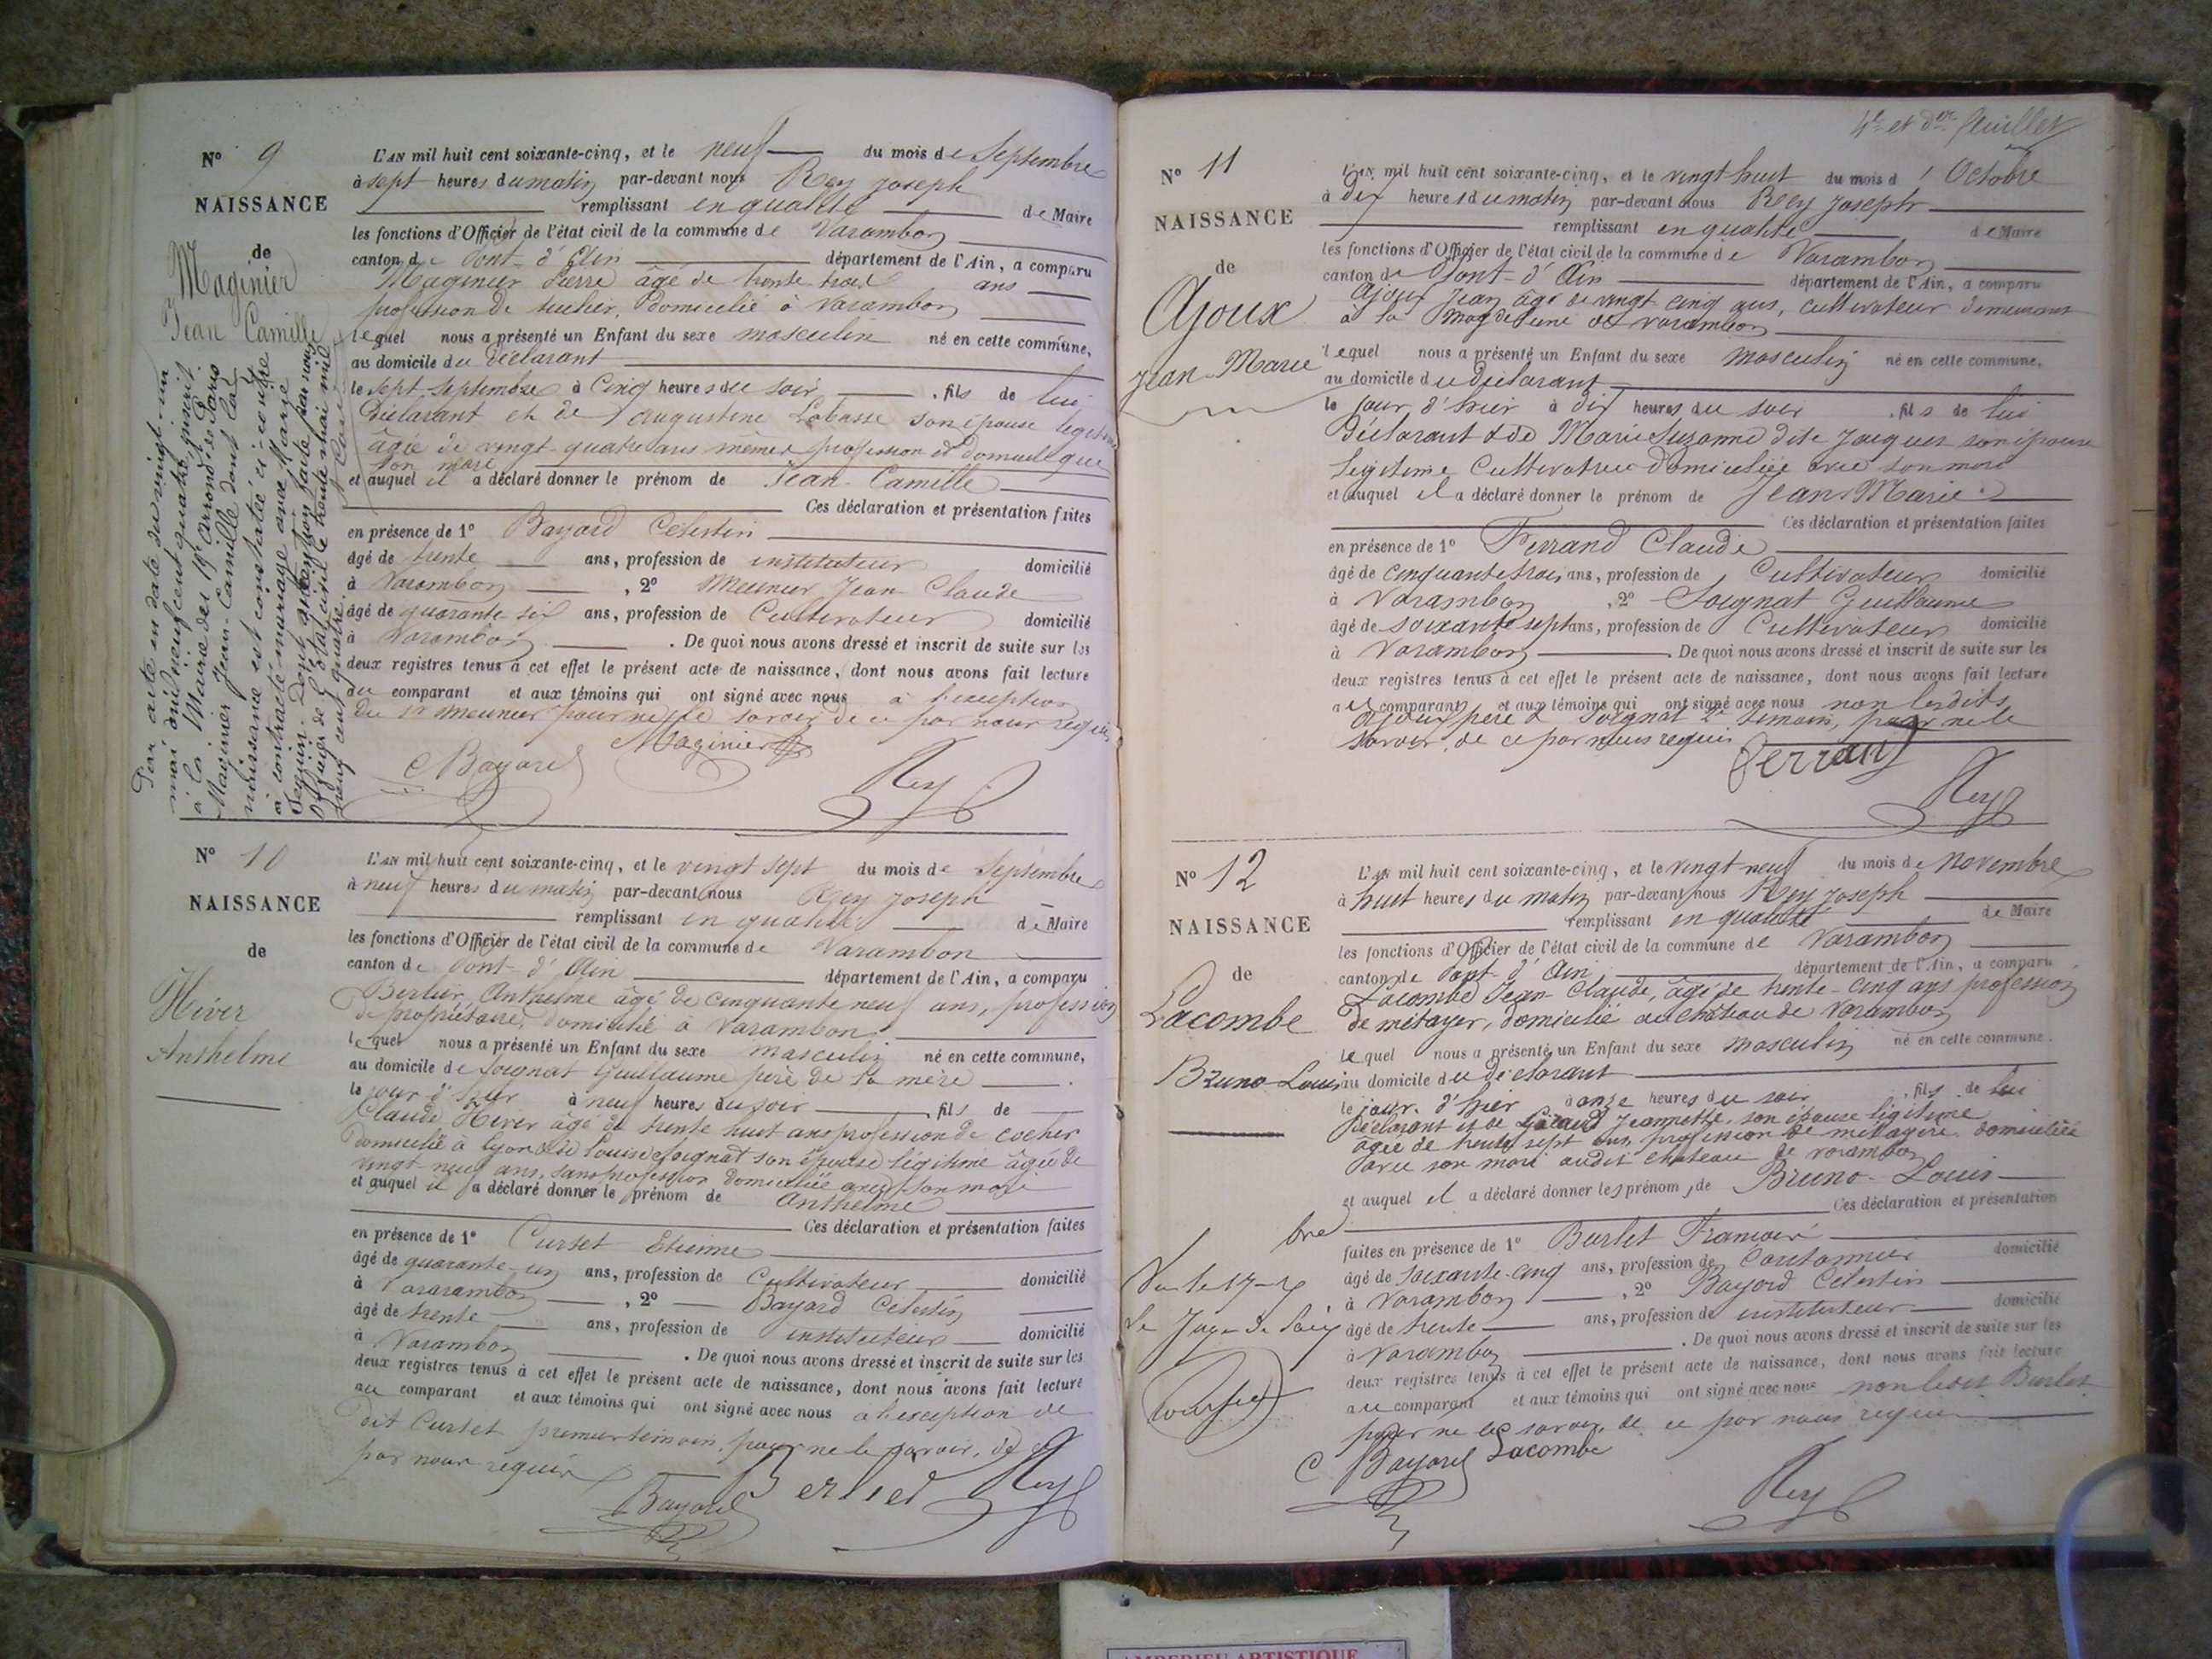 N° 9
NAISSANCE
de
Maginier
Jean Camille
Par acte en date du vingt-un
mai mil neuf cent quatre, inscrit
à la Mairie du 19e arrond. de Paris
Maginier Jean-Camille dont la
naissance est constatée ci-contre
a contracté mariage avec Marie
Seguin. Dont mention faite par nous
de l'état civil le trente mai mil
neuf cent quatre.
L'AN mil huit cent soixante-cinq, et le neuf du mois de Septembre
à sept heures du matin par-devant nous Rey Joseph
remplissant en qualité de Maire
les fonctions d'Officier de l'état civil de la commune de Varambon
canton de Pont-d'Ain département de l'Ain, a comparu
Maginier Pierre âgé de trente trois ans
profession de tuilier, domicilié à Varambon
lequel nous a présenté un Enfant du sexe masculin né en cette commune,
au domicile du déclarant
le sept Septembre à Cinq heures du soir, fils de lui
Déclarant et de Augustine Labasse son épouse légitime
âgée de vingt-quatre ans même profession et domicile que
son mari
et auquel il a déclaré donner le prénom de Jean-Camille
Ces déclaration et présentation faites
en présence de 1° Bayard Célestin
âgé de trente ans, profession de instituteur domicilié
à Varambon, 2° Meunier Jean-Claude
âgé de quarante six ans, profession de Cultivateur domicilié
à Varambon. De quoi nous avons dressé et inscrit de suite sur les
deux registres tenus à cet effet le présent acte de naissance, dont nous avons fait lecture
au comparant et aux témoins qui ont signé avec nous à l'exception
du sr Meunier pour ne le savoir de ce par nous requis
Maginier
C Bayard Rey
N° 10
NAISSANCE
de
Hiver
Anthelme
L'AN mil huit cent soixante-cinq, et le vingt sept du mois de Septembre
à neuf heures du matin par-devant nous Rey Joseph
remplissant en qualité de Maire
les fonctions d'Officier de l'état civil de la commune de Varambon
canton de Pont-d'Ain département de l'Ain, a comparu
Berlier Anthelme âgé de cinquante neuf ans, profession
de propriétaire, domicilié à Varambon
lequel nous a présenté un Enfant du sexe masculin né en cette commune,
au domicile de Soignat Guillaume père de la mère
le jour d'hier à neuf heures du soir, fils de
Claude Hiver âgé de trente huit ans profession de cocher
domicilié à Lyon et de Louise Soignat son épouse légitime âgée de
vingt-neuf ans, sans profession domiciliée avec son mari
et auquel il a déclaré donner le prénom de Anthelme
Ces déclaration et présentation faites
en présence de 1° Curset Etienne
âgé de quarante-un ans, profession de Cultivateur domicilié
à Vararambon, 2° Bayard Célestin
âgé de trente ans, profession de instituteur domicilié
à Varambon. De quoi nous avons dressé et inscrit de suite sur les
deux registres tenus à cet effet le présent acte de naissance, dont nous avons fait lecture
au comparant et aux témoins qui ont signé avec nous à l'exception de
dit Curset premier témoin, pour ne le savoir, de ce
par nous requis
Bayard Berlier Rey
4e et der feuillet
N° 11
NAISSANCE
de
Ajoux
Jean-Marie
L'AN mil huit cent soixante-cinq, et le vingt huit du mois d'Octobre
à dix heures du matin par-devant nous Rey Joseph
remplissant en qualité de Maire
les fonctions d'Officier de l'état civil de la commune de Varambon
canton de Pont-d'Ain département de l'Ain, a comparu
Ajoux Jean âgé de vingt cinq ans, cultivateur demeurant
à la Magdeleine de Varambon
lequel nous a présenté un Enfant du sexe masculin né en cette commune,
au domicile du déclarant
le jour d'hier à dix heures du soir, fils de lui
Déclarant & de Marie Suzanne dite Jacques son épouse
légitime Cultivatrice domiciliée avec son mari
et auquel il a déclaré donner le prénom de Jean Marie
Ces déclaration et présentation faites
en présence de 1° Ferrand Claude
âgé de cinquante trois ans, profession de Cultivateur domicilié
à Varambon, 2° Soignat Guillaume
âgé de soixante sept ans, profession de Cultivateur domicilié
à Varambon. De quoi nous avons dressé et inscrit de suite sur les
deux registres tenus à cet effet le présent acte de naissance, dont nous avons fait lecture
aux comparant et aux témoins qui ont signé avec nous non lesdits
Ajoux père & Soignat 2e témoin, pour ne le
savoir, de ce par nous requis
Ferrand
Rey
N° 12
NAISSANCE
de
Lacombe
Bruno-Louis
L'AN mil huit cent soixante-cinq, et le vingt-neuf du mois de Novembre
à huit heures du matin par-devant nous Rey Joseph
remplissant en qualité de Maire
les fonctions d'Officier de l'état civil de la commune de Varambon
canton de Pont-d'Ain département de l'Ain, a comparu
Lacombe Jean-Claude, âgé de trente-cinq ans profession
de métayer, domicilié au château de Varambon
lequel nous a présenté un Enfant du sexe masculin né en cette commune.
au domicile du déclarant
le jour d'hier à onze heures du soir, fils de lui
Déclarant et de Jeannette, son épouse légitime
âgée de trente sept ans profession de métayère domiciliée
avec son mari audit château de Varambon
et auquel il a déclaré donner les prénom, de Bruno-Louis
Ces déclaration et présentation
faites en présence de 1° Burlet François
âgé de soixante-cinq ans, profession de Cantonnier domicilié
à Varambon, 2° Bayard Célestin
âgé de trente ans, profession de instituteur domicilié
à Varambon. De quoi nous avons dressé et inscrit de suite sur les
deux registres tenus à cet effet le présent acte de naissance, dont nous avons fait lecture
au comparant et aux témoins qui ont signé avec nous non ledit Burlet
pour ne le savoir, de ce par nous requis
C Bayard Lacombe
Rey
Le Juge de Paix
AMBERIEU ARTISTIQUE